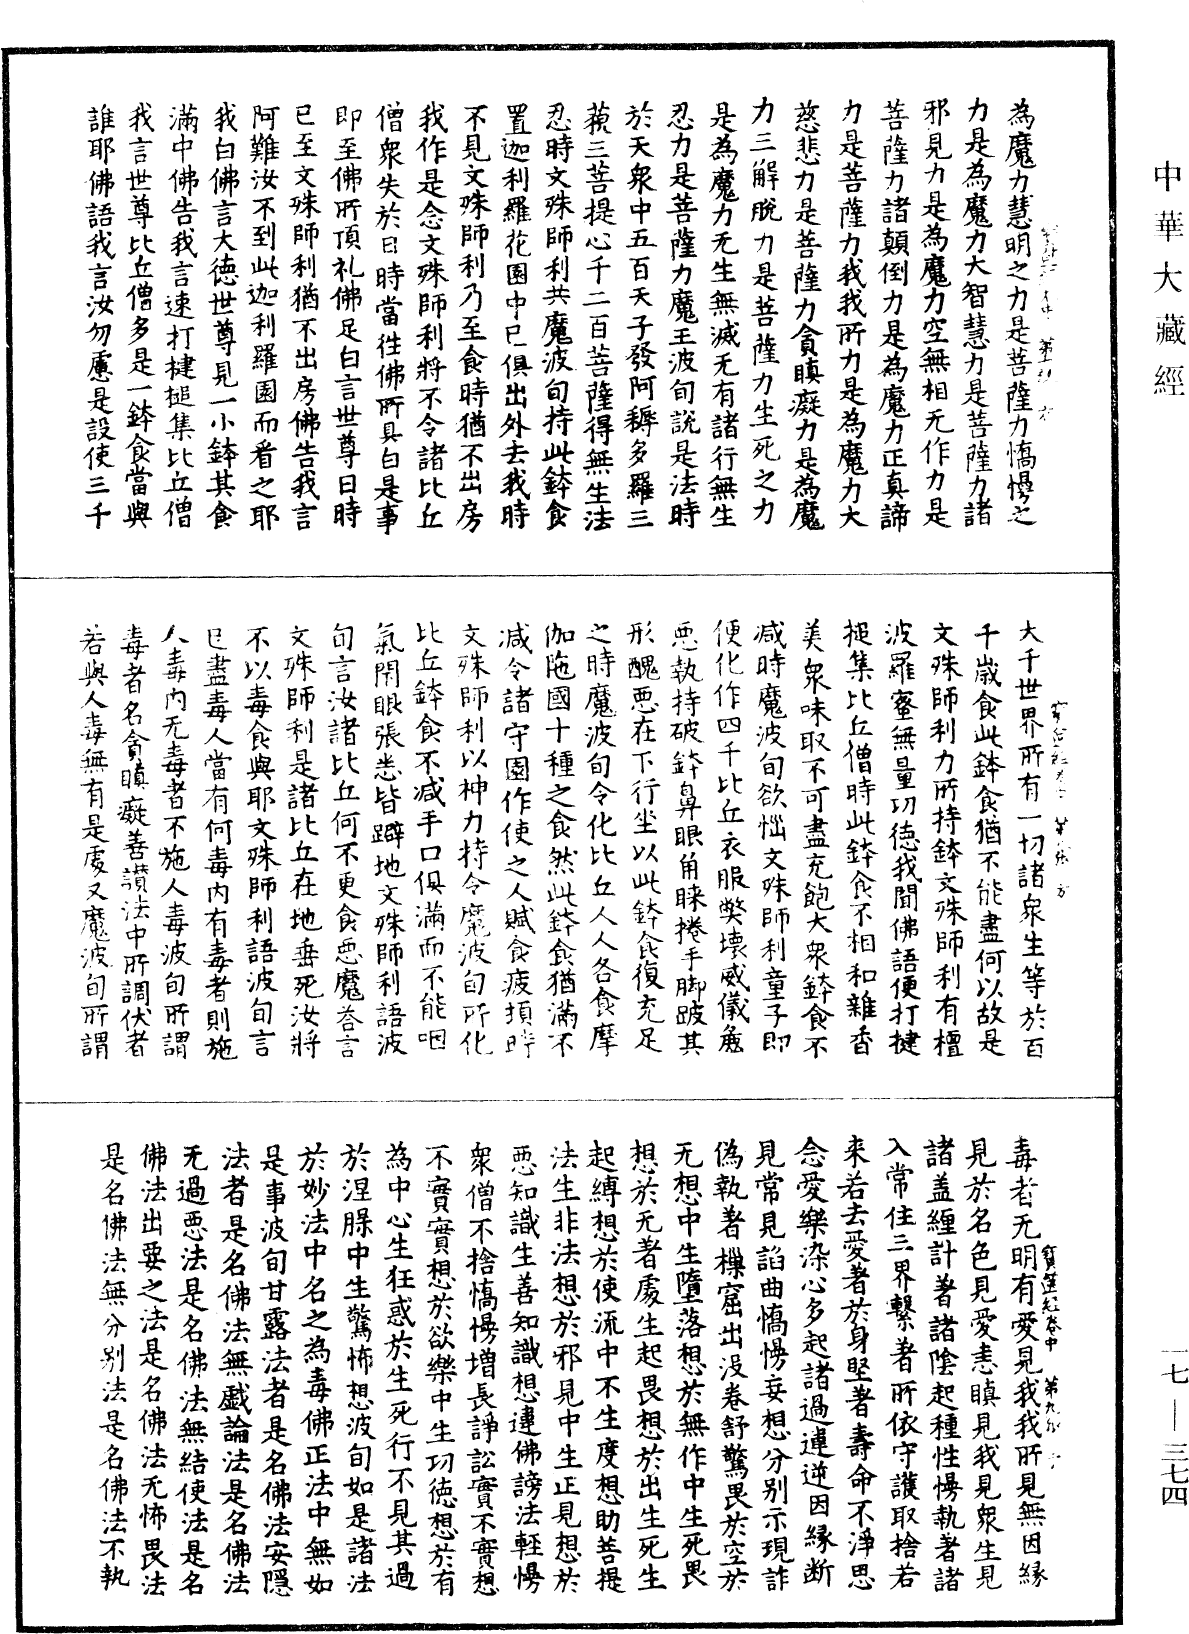 中華大藏經
為魔力慧明之力是菩薩力憍慢之
力是為魔力大智慧力是菩薩力諸
邪見力是為魔力空無相无作力是
菩薩力諸顛倒力是為魔力正真諦
力是菩薩力我我所力是為魔力大
慈悲力是菩薩力貪瞋癡力是為魔
力三解脫力是菩薩力生死之力
是為魔力无生無滅无有諸行無生
忍力是菩薩力魔王波旬說是法時
於天衆中五百天子發阿耨多羅三
藐三菩提心千二百菩薩得無生法
忍時文殊師利共魔波旬持此鉢食
置迦利羅花園中已俱出外去我時
不見文殊師利乃至食時猶不出房
我作是念文殊師利將不令諸比丘
僧衆失於日時當往佛所具白是事
即至佛所頂礼佛足白言世尊日時
已至文殊師利猶不出房佛告我言
阿難汝不到此迦利羅園而看之耶
我白佛言大德世尊見一小鉢其食
滿中佛告我言速打揵槌集比丘僧
我言世尊比丘僧多是一鉢食當與
誰耶佛語我言汝勿慮是設使三千
大千世界所有一切諸衆生等於百
千歲食此鉢食猶不能盡何以故是
文殊師利力所持鉢文殊師利有檀
波羅蜜無量功德我聞佛語便打揵
搥集比丘僧時此鉢食不相和雜香
美衆味取不可盡充飽大衆鉢食不
減時魔波旬欲惱文殊師利童子即
便化作四千比丘衣服弊壞威儀麁
惡執持破鉢鼻眼角睞捲手脚跛其
形醜惡在下行坐以此鉢食復充足
之時魔波旬令化比丘人人各食摩
伽陁國十種之食然此鉢食猶滿不
減令諸守園作使之人賦食疲損時
文殊師利以神力持令魔波旬所化
比丘鉢食不減手口俱滿而不能咽
氣閇眼張悉皆躃地文殊師利語波
旬言汝諸比丘何不更食惡魔荅言
文殊師利是諸比丘在地垂死汝將
不以毒食與耶文殊師利語波旬言
已盡毒人當有何毒內有毒者則施
人毒內无毒者不施人毒波旬所謂
毒者名貪瞋癡善讚法中所調伏者
若與人毒無有是處又魔波旬所謂
寶篋經卷中 第九張
毒者无明有愛見我我所見無因緣
見於名色見愛恚瞋見我見衆生見
諸盖纏計著諸陰起種性慢執著諸
入常住三界繫著所依守護取捨若
來若去愛著於身堅著壽命不淨思
念愛樂染心多起諸過違逆因緣斷
見常見諂曲憍慢妄想分別示現詐
偽執著樔窟出没卷舒驚畏於空於
无想中生墮落想於無作中生死畏
想於无著處生起畏想於出生死生
起縛想於使流中不生度想助菩提
法生非法想於邪見中生正見想於
惡知識生善知識想違佛謗法輕慢
衆僧不捨憍慢增長諍訟實不實想
不實實想於欲樂中生功德想於有
為中心生狂惑於生死行不見其過
於涅槃中生驚怖想波旬如是諸法
於妙法中名之為毒佛正法中無如
是事波旬甘露法者是名佛法安隱
法者是名佛法無戲論法是名佛法
无過惡法是名佛法無結使法是名
佛法出要之法是名佛法无怖畏法
是名佛法無分别法是名佛法不執
一七—三七四